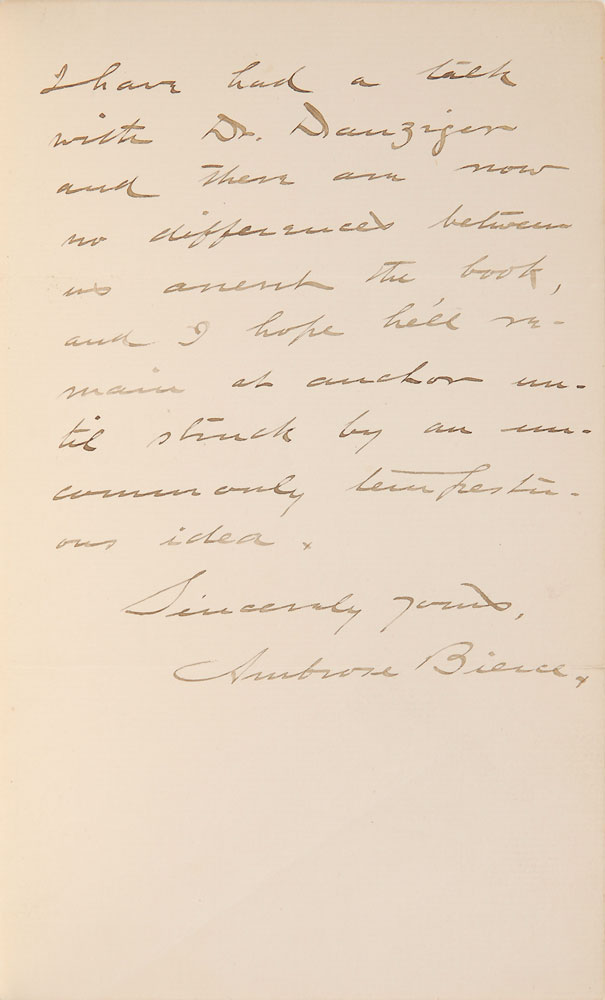 I have had a talk
with Dr. Danziger
and there are now
no differences between
us anent the book,
and I hope he'll re-
main at anchor un-
til struck by an un-
commonly tempestu-
ous idea.
Sincerely yours,
Ambrose Bierce.